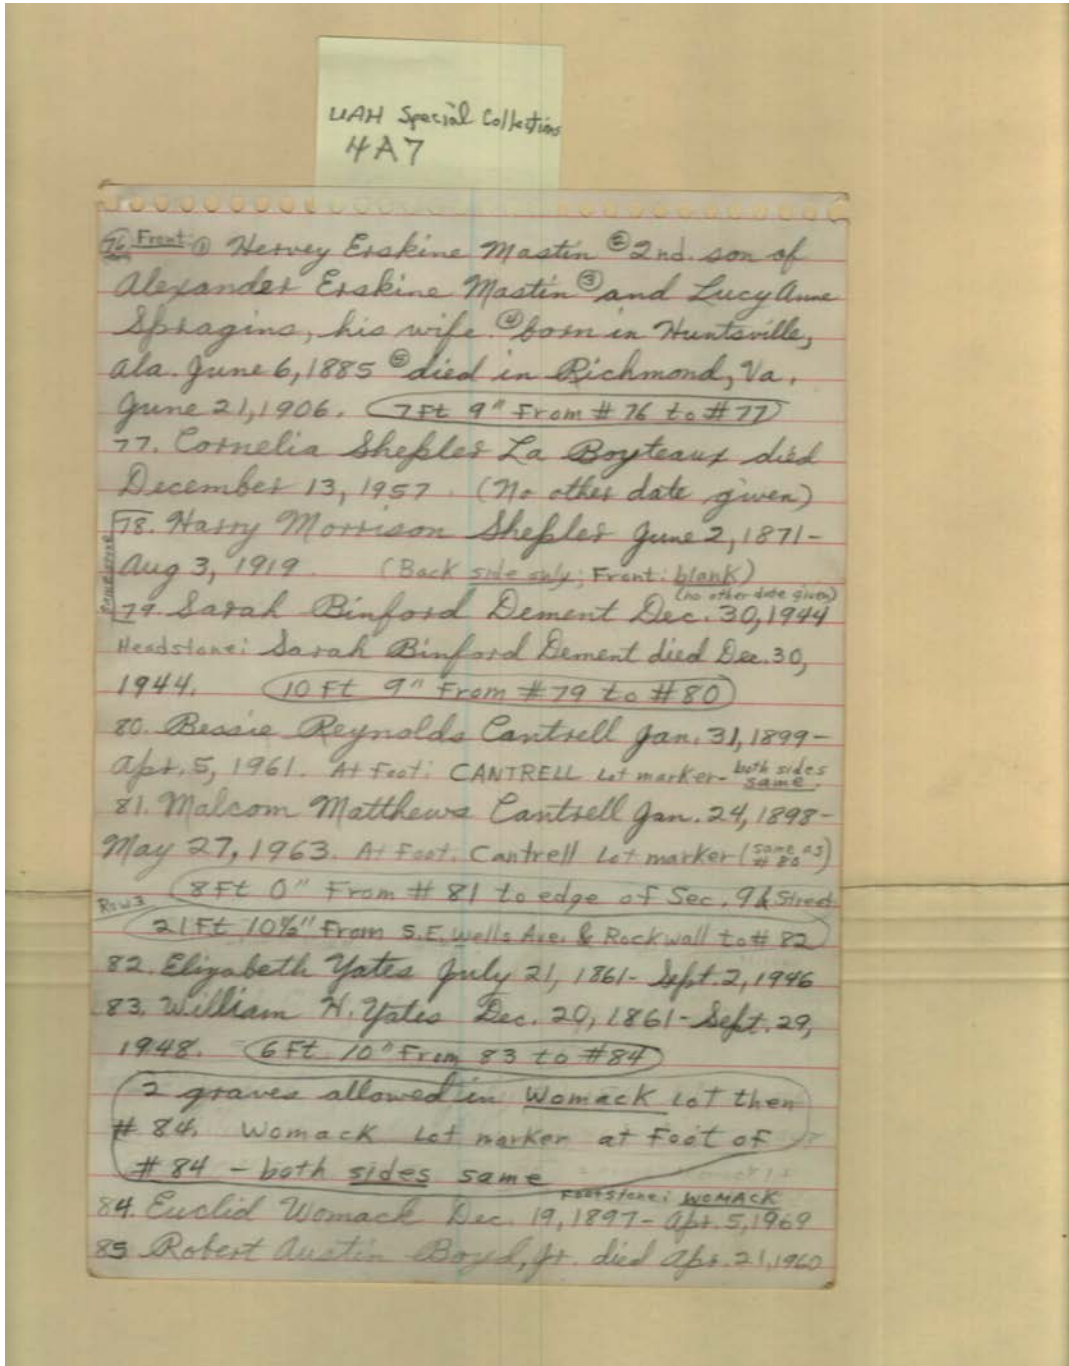 UAH Special Collections
4A7
76 Front ① Hervey Erskine Mastin ② 2nd. son of
Alexander Erskine Mastin ③ and Lucy Anne
Spragins, his wife. ④ born in Huntsville,
Ala. June 6, 1885 ⑤ died in Richmond, Va.
June 21, 1906. 7 Ft 9" From # 76 to # 77
77. Cornelia Shepler La Boyteaux died
December 13, 1957. (No other date given)
78. Harry Morrison Shepler June 2, 1871-
Aug 3, 1919. (Back side only; Front: blank)
(no other date given)
79. Sarah Binford Dement Dec. 30, 1944
Headstone: Sarah Binford Dement died Dec. 30,
1944. 10 Ft 9" From # 79 to # 80
80. Bessie Reynolds Cantrell Jan. 31, 1899-
Apr. 5, 1961. At Foot: CANTRELL Lot marker- both sides
same.
81. Malcom Matthews Cantrell Jan. 24, 1898-
May 27, 1963. At Foot. Cantrell Lot marker (same as
# 80)
8 Ft 0" From # 81 to edge of Sec. 9 & Street
Row 3
21 Ft 10½" From S.E. Wells Ave. & Rockwall to # 82
82. Elizabeth Yates July 21, 1861- Sept. 2, 1946
83. William H. Yates Dec. 20, 1861- Sept. 29,
1948. 6 Ft 10" From 83 to # 84
2 graves allowed in Womack Lot then
# 84. Womack Lot marker at Foot of
# 84 - both sides same
Footstone: WOMACK
84. Euclid Womack Dec. 19, 1897- Apr. 5, 1969
85 Robert Austin Boyd, Jr. died Apr. 21, 1960